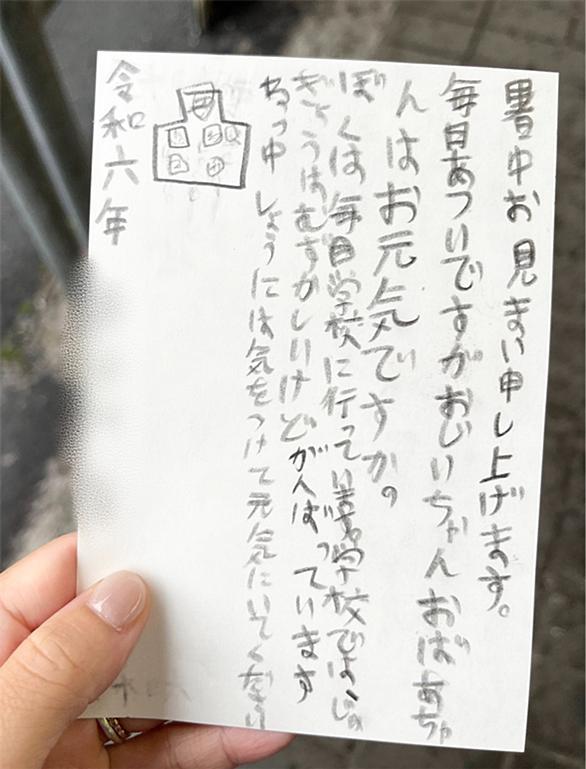 暑中お見まい申し上げます。
毎日あついですがおじいちゃんおばあちゃ
んはお元気ですか。
ぼくは毎日学校に行ってい学校ではじゅ
ぎょうはむずかしいけどがんばっています
ねっ中しょうには気をつけて元気にいてください
令和六年